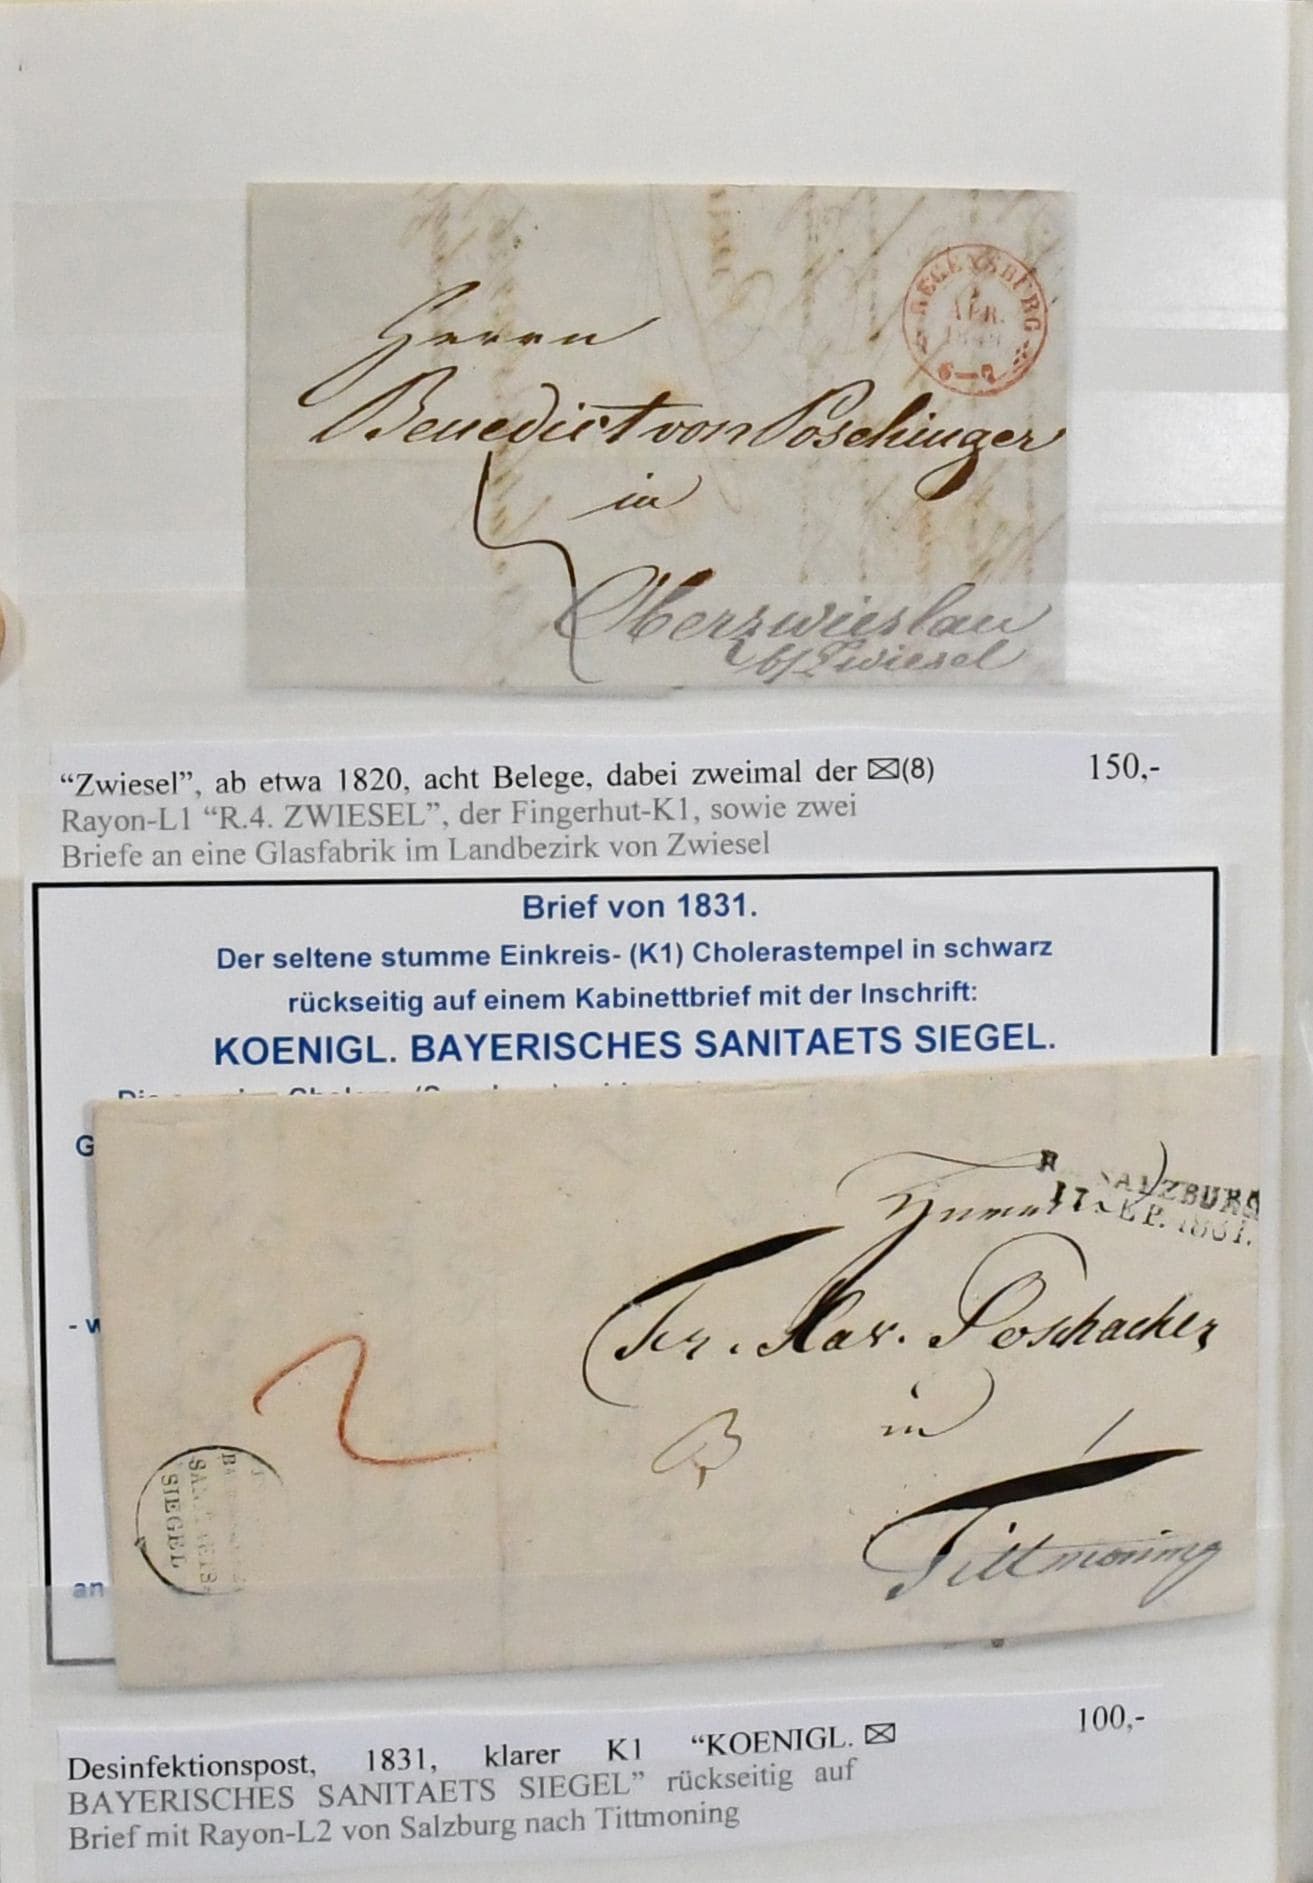 REGENSBURG
APR.
6—7
Herrn
Benedict von Poschinger
in
Oberzwieslau
b/Zwiesel
“Zwiesel”, ab etwa 1820, acht Belege, dabei zweimal der ✉(8) 150,-
Rayon-L1 “R.4. ZWIESEL”, der Fingerhut-K1, sowie zwei
Briefe an eine Glasfabrik im Landbezirk von Zwiesel
Brief von 1831.
Der seltene stumme Einkreis- (K1) Cholerastempel in schwarz
rückseitig auf einem Kabinettbrief mit der Inschrift:
KOENIGL. BAYERISCHES SANITAETS SIEGEL.
G
- w
an
SALZBURG
17 SEP. 1831.
Fr. Xav. Poschacher
in
Tittmoning
2
SIEGEL
Desinfektionspost, 1831, klarer K1 “KOENIGL. ✉ 100,-
BAYERISCHES SANITAETS SIEGEL” rückseitig auf
Brief mit Rayon-L2 von Salzburg nach Tittmoning